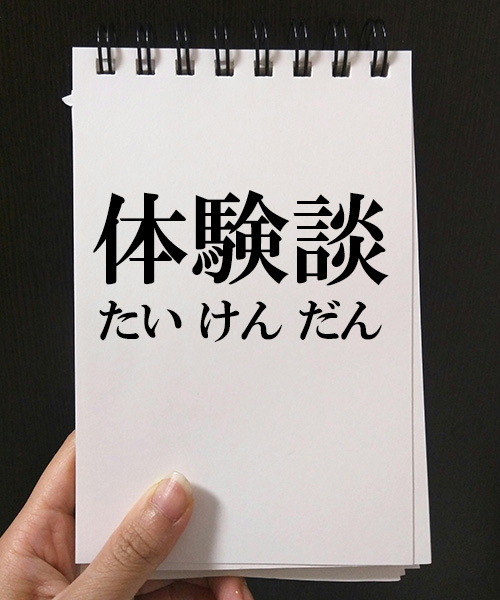 体験談
たい けん だん